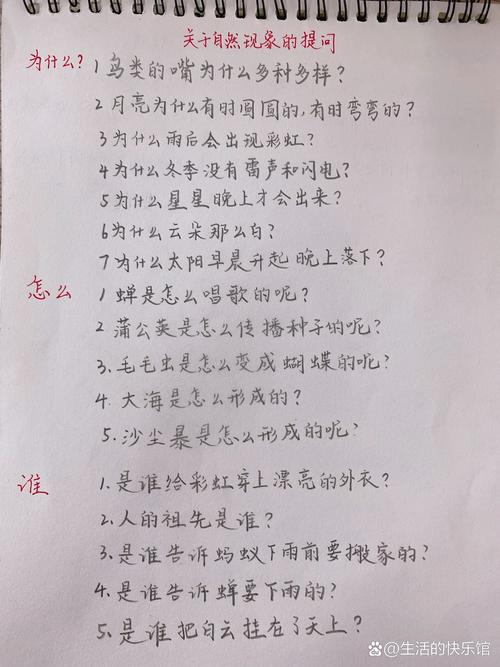 关于自然现象的提问
为什么? 1 鸟类的嘴为什么多种多样?
2 月亮为什么有时圆圆的,有时弯弯的?
3 为什么雨后会出现彩虹?
4 为什么冬季没有雷声和闪电?
5 为什么星星晚上才会出来?
6 为什么云朵那么白?
7 为什么太阳早晨升起 晚上落下?
怎么 1 蝉是怎么唱歌的呢?
2 蒲公英是怎么传播种子的呢?
3. 毛毛虫是怎么变成蝴蝶的呢?
4. 大海是怎么形成的?
5. 沙尘暴是怎么形成的呢?
谁 1. 是谁给彩虹穿上漂亮的外衣?
2. 人的祖先是谁?
3. 是谁告诉蚂蚁下雨前要搬家的?
4. 是谁告诉蝉要下雨的?
5. 是谁把白云挂在了天上?
@生活的快乐馆